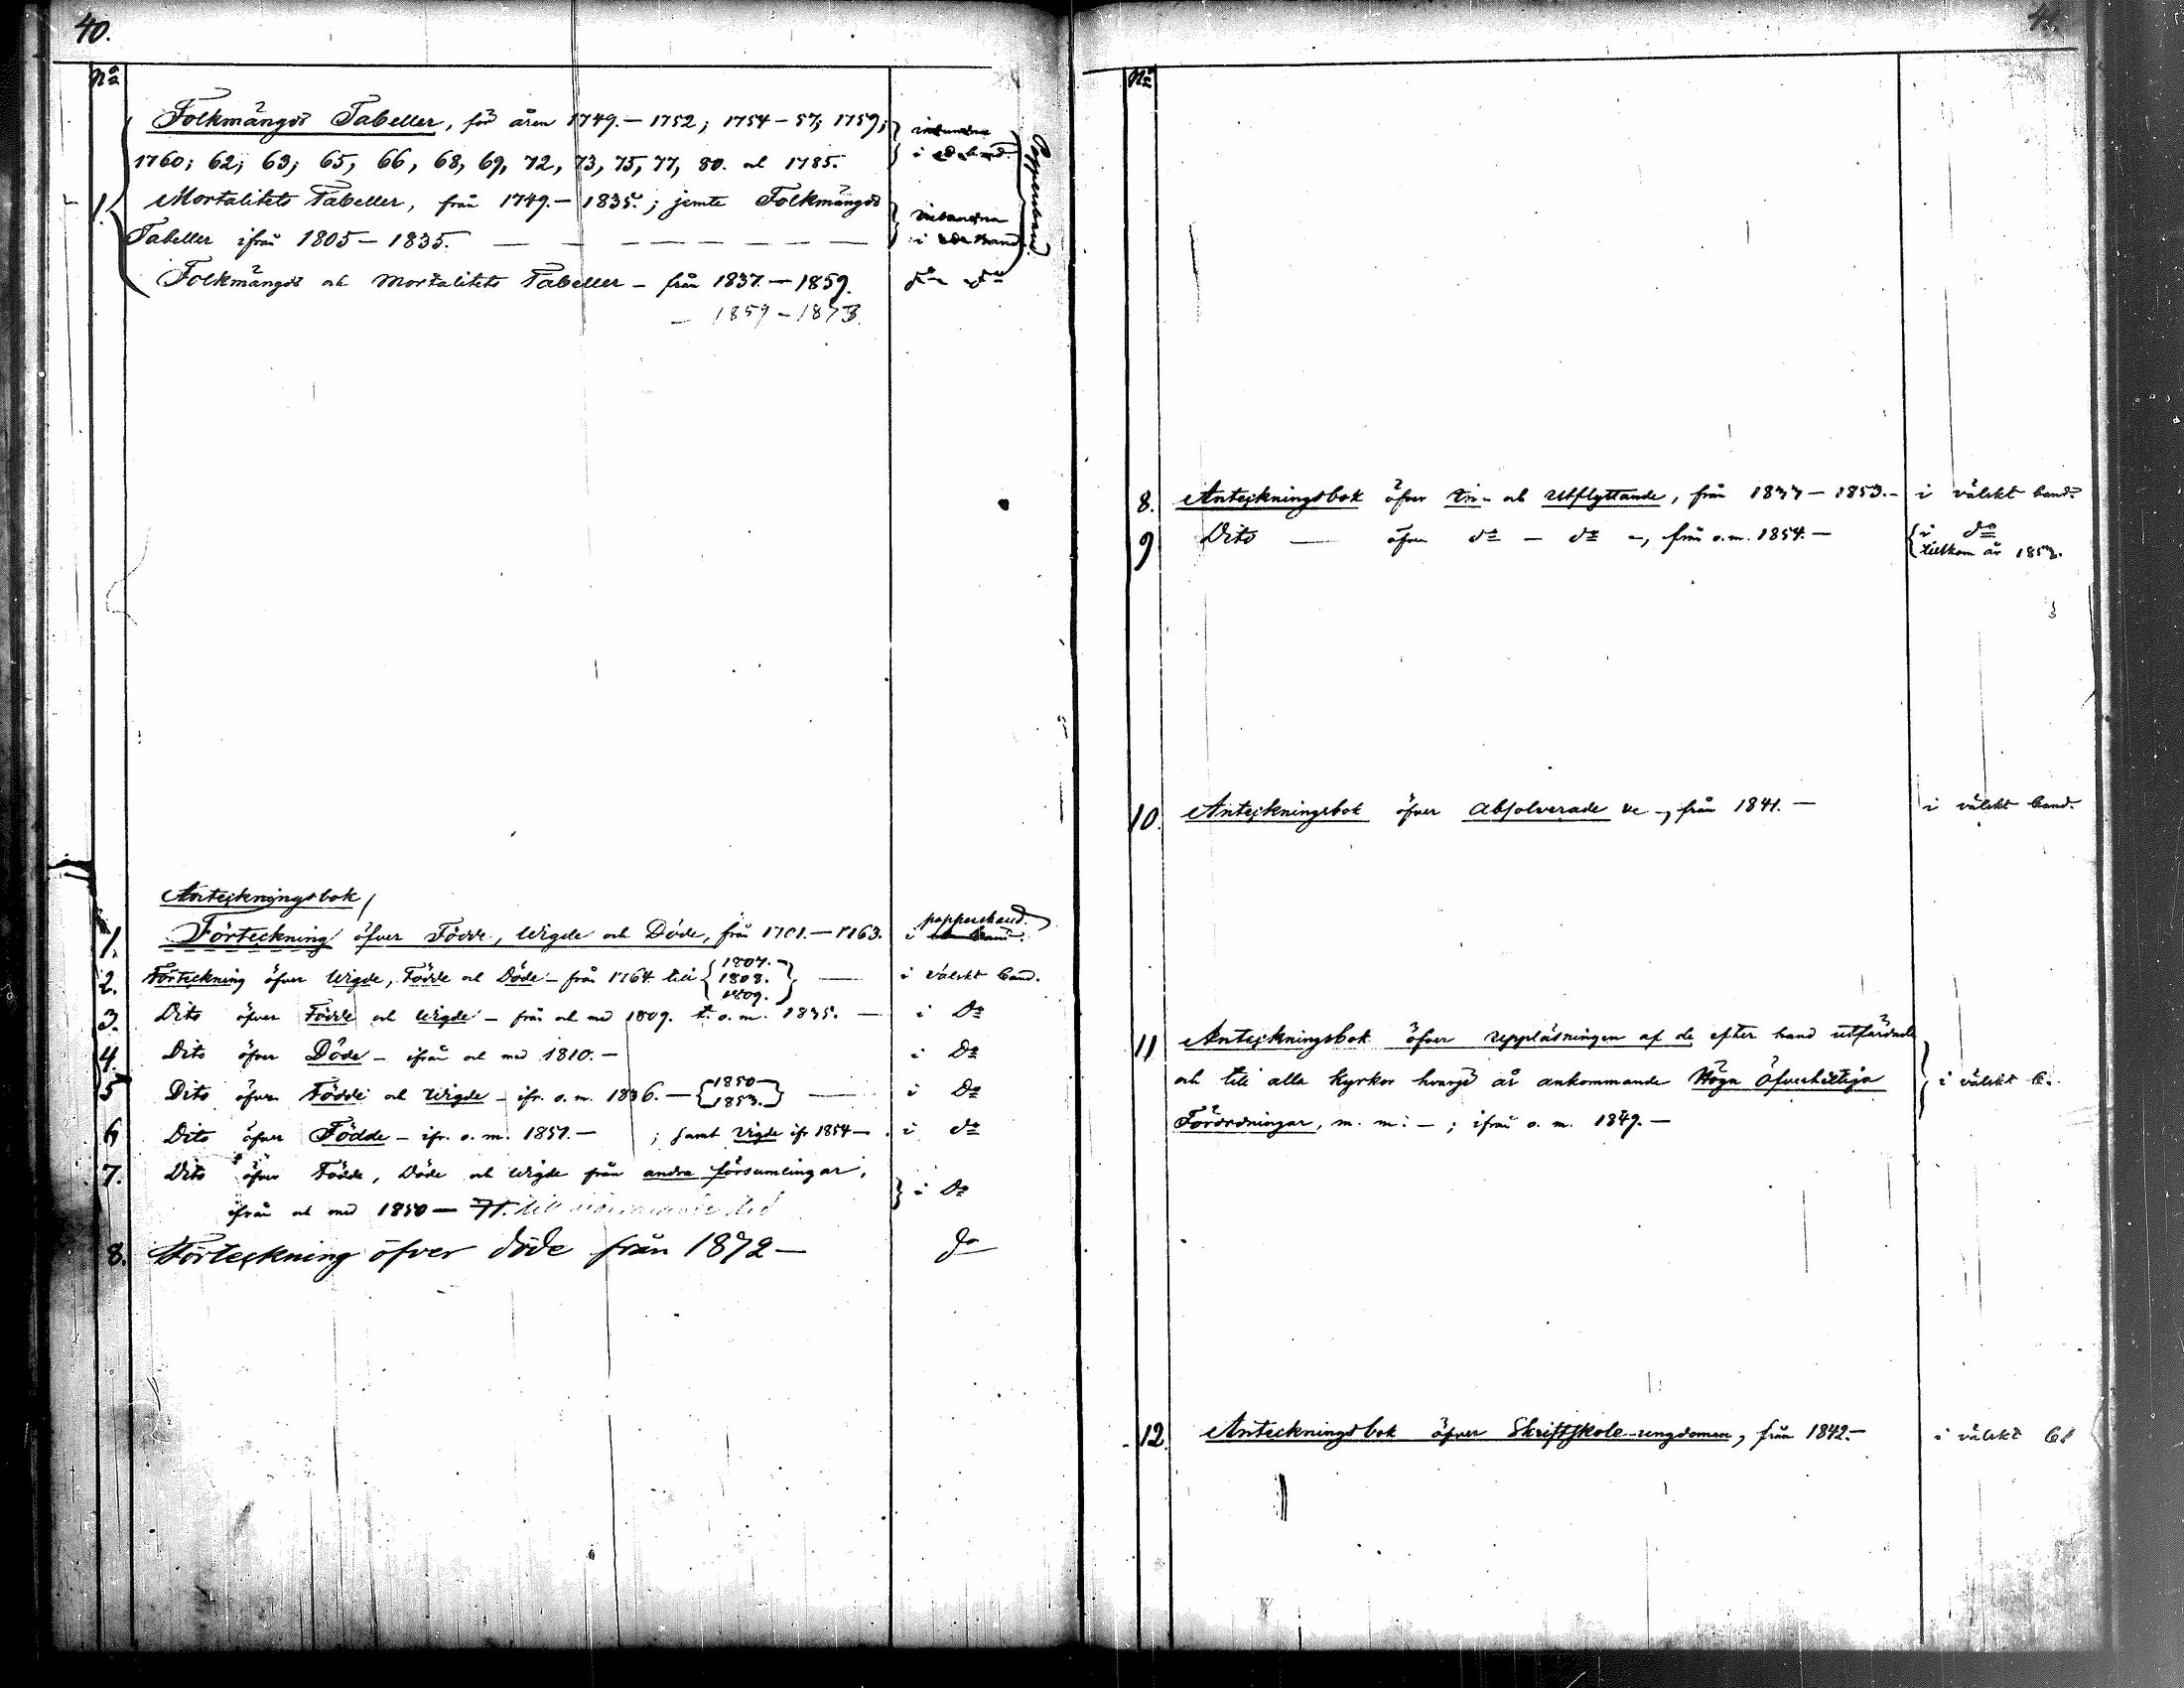 40.
No
Folkmängds Tabeller, för åren 1749.–1752; 1754–57; 1759;
1760; 62; 63; 65, 66, 68, 69, 72, 73, 75, 77, 80. och 1785.
i band.
Pappersband
1. Mortalitets Tabeller, från 1749.–1835.; jemte Folkmängds
Tabeller ifrån 1805–1835. — — — — — — — —
i band.
Folkmängds och Mortalitets Tabeller – från 1837.–1859. do do
– 1859–1873.
Anteckningsbok
1. Förteckning öfver Födde, Wigde och Döde, från 1701.–1763. i pappersband.
2. Förteckning öfver Wigde, Födde och Döde – från 1764 till { 1807. 1808. 1809. } — i välskt band.
3. Dito öfver Födde och Wigde – från och med 1809. t. o. m. 1835. — i Do
4. Dito öfver Döde – ifrån och med 1810. – i Do
5 Dito öfver Födde och Wigde – ifr. o. m. 1836. – { 1850 1853. } — i Do
6 Dito öfver Födde – ifr. o. m. 1851. – ; samt Vigde ifr 1854 – i do
7. Dito öfver Födde, Döde och Wigde från andra församlingar,
ifrån och med 1850 – till } i Do
8. Förteckning öfver döde från 1872 – do
41.
No
8. Anteckningsbok öfver In- och Utflyttande, från 1837–1853. – i välskt band.
9 Dito — öfver do – do –, från o. m. 1854. – { i do
tillkom år 1853.
10. Anteckningsbok öfver Absolverade &c –, från 1841. – i välskt band.
11 Anteckningsbok öfver uppläsningen af de efter hand utfärdade
och till alla kyrkor hvarje år ankommande Höga Öfverhetliga } i välskt b.
Förordningar, m. m. – ; ifrån o. m. 1849. –
12. Anteckningsbok öfver Skriftskole-ungdomen, från 1842. – i välskt bd